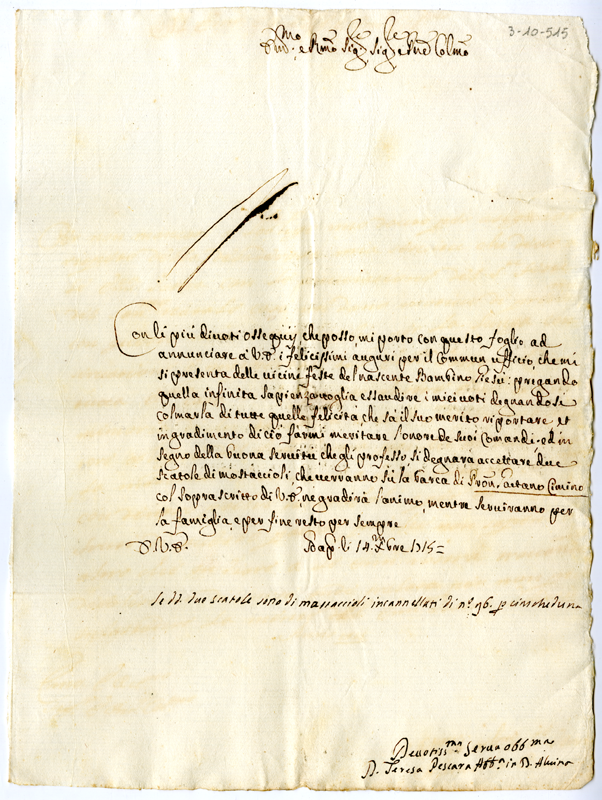 3-10-515
Ill.mo e Rmo Sig.re Sig.re e Pne Colmo
Con li più divoti ossequij, che posso, mi porto con questo foglio ad
annunciare à V.S. i felicissimi auguri per il commun ufficio, che mi
si presenta delle vicine feste del nascente Bambino Giesù; pregando
quella infinita sapienza voglia essaudire i miei voti degnandosi
colmarla di tutte quelle felicità, che sà il suo merito riportare, et
in gradimento di ciò farmi meritare l'onore de suoi comandi, ed in
segno della buona servitù, che gli professo si degnarà accettare due
scatole di mostaccioli, che verranno sù la barca di Pron Gaetano Cimino
col soprascritto di V.S., ne gradirà l'animo, mentre serviranno per
la famiglia, e per fine resto per sempre
D. V.S. Nap. li 14 Xbre 1715=
le dd. due scatole sono di mastaccioli incannellati di n.o 96. p ciascheduna
Devotiss.ma Serva obb.ma
D. Teresa Pescara Abb.a in D. Alvina